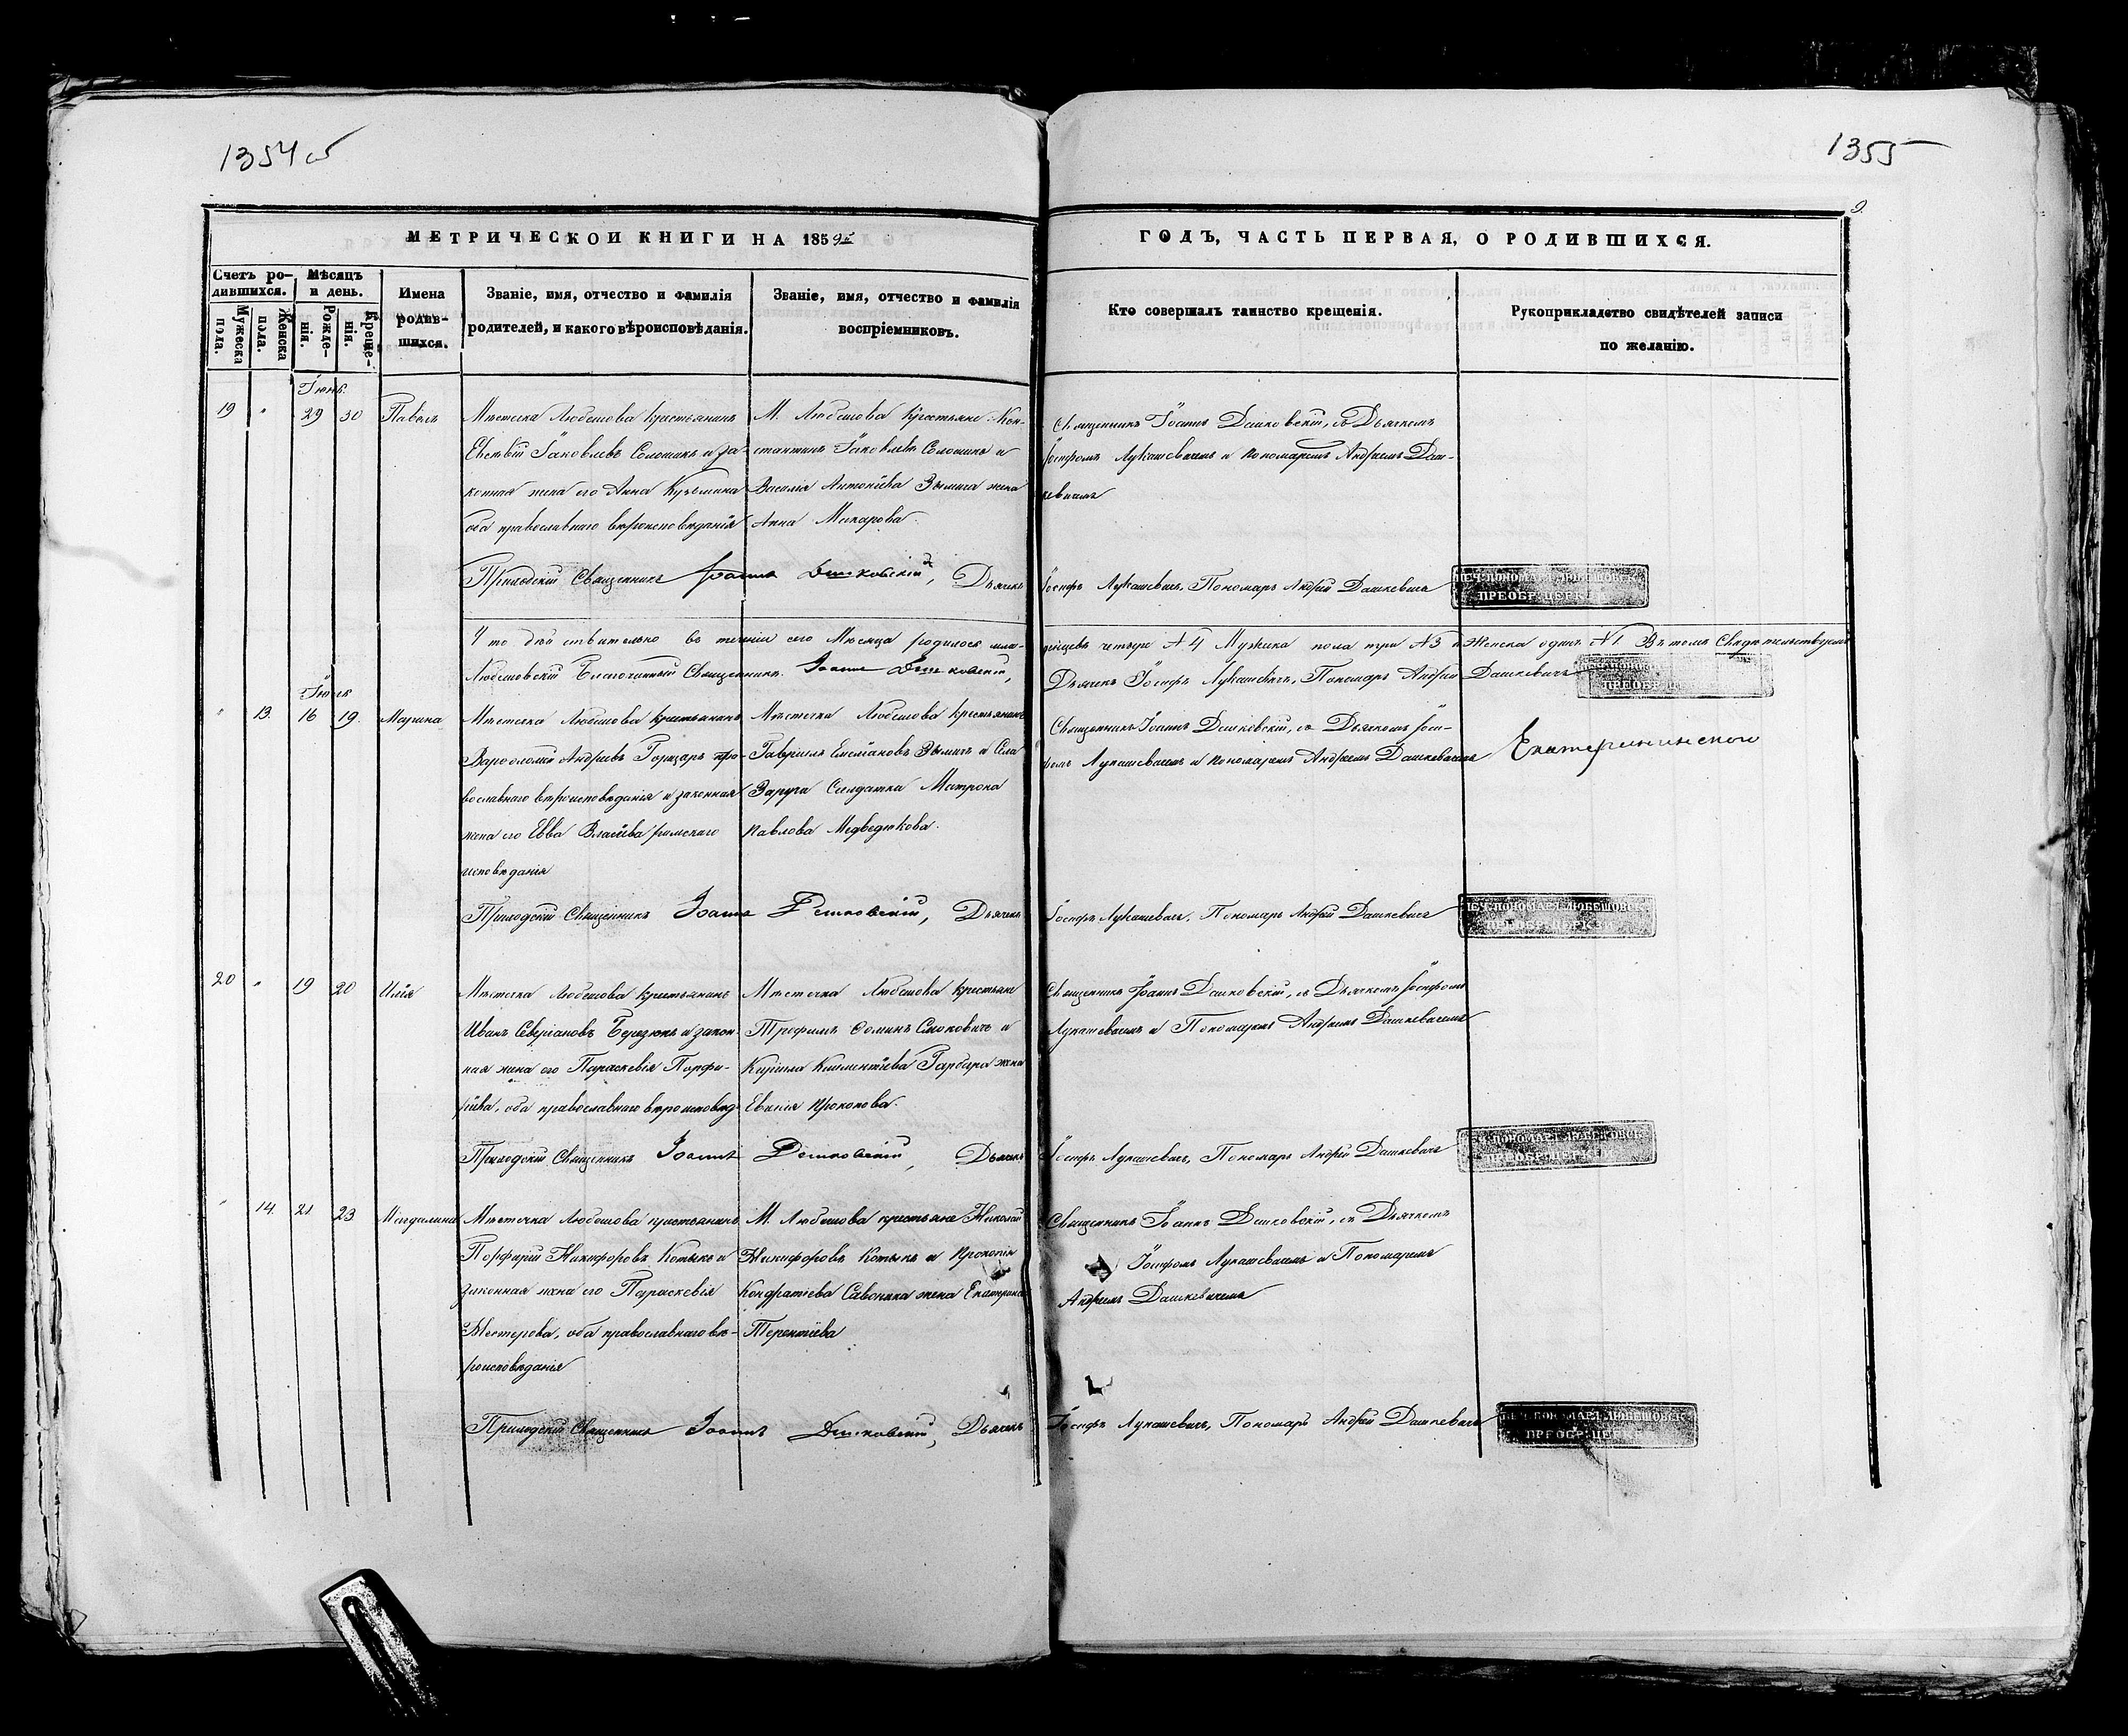 1354 об
1355
9.
МЕТРИЧЕСКОЙ КНИГИ НА 1859й
ГОДЪ, ЧАСТЬ ПЕРВАЯ, О РОДИВШИХСЯ.
Счетъ ро-
дившихся.
Мужеска пола.
Женска пола.
Мѣсяцъ
и день.
Рожде-
нія.
Креще-
нія.
Имена
родив-
шихся.
Званіе, имя, отчество и фамилія
родителей, и какого вѣроисповѣданія.
Званіе, имя, отчество и фамилія
воспріемниковъ.
Кто совершалъ таинство крещенія.
Рукоприкладство свидѣтелей записи
по желанію.
Іюнь
19 " 29 30 Павелъ
Мѣстечка Любешова крестьянинъ
Евсѣвій Іаковлевъ Соломикъ и за-
конная жена его Анна Кузьмина
оба православнаго вѣроисповѣданія
М. Любешова крестьяне: Кон-
стантинъ Іаковлевъ Соломикъ и
Василія Антоніева Зымича жена
Анна Макарова.
Священникъ Іоаннъ Дашковскій, съ Дьячкомъ
Іосифомъ Лукашевичемъ и пономаремъ Андреемъ Даш-
кевичемъ
Приходскій Священникъ Іоаннъ Дашковскій, Дьячекъ Іосифъ Лукашевичъ, Пономарь Андрей Дашкевичъ
ПЕЧ: ПОНОМАРЯ ЛЮБЕШОВСК:
ПРЕОБР: ЦЕРКВИ
Что дѣйствительно въ теченіи сего Мѣсяца родилось мла-
денцевъ четыре №4 Мужеска пола три №3 и Женска одинъ №1 Въ томъ Свидѣтельствуемъ
Любешовскій Благочинный Священникъ Іоаннъ Дашковскій,
Дьячекъ Іосифъ Лукашевичъ, Пономарь Андрей Дашкевичъ
Іюль
" 13. 16 19. Марина
Мѣстечка Любешова крестьянинъ
Варѳоломей Андреевъ Горщаръ пра-
вославнаго вѣроисповѣданія и законная
жена его Евва Власіева римскаго
исповѣданія
Мѣстечка Любешова крестьянинъ
Гавріилъ Емеліановъ Зымичъ и Села
Заруги Солдатка Матрона
Павлова Медведюкова.
Священникъ Іоаннъ Дашковскій, съ Дьячкомъ Іоси-
фомъ Лукашевичемъ и пономаремъ Андреемъ Дашкевичемъ
Екатерининского
Приходскій Священникъ Іоаннъ Дашковскій, Дьячекъ Іосифъ Лукашевичъ, Пономарь Андрей Дашкевичъ
ПЕЧ: ПОНОМАРЯ ЛЮБЕШОВСК:
ПРЕОБР: ЦЕРКВИ
20 " 19 20 Илія
Мѣстечка Любешова крестьянинъ
Иванъ Севіріановъ Березюкъ и закон-
ная жена его Параскевія Порфи-
ріева, оба православнаго вѣроисповѣд.
Мѣстечка Любешова крестьяне
Трофимъ Ѳоминъ Смоковичъ и
Кирилла Климентіева Гарбара жена
Евгенія Прокопова.
Священникъ Іоаннъ Дашковскій, съ Дьячкомъ Іосифомъ
Лукашевичемъ и Пономаремъ Андреемъ Дашкевичемъ
Приходскій Священникъ Іоаннъ Дашковскій, Дьячекъ Іосифъ Лукашевичъ, Пономарь Андрей Дашкевичъ
ПЕЧ: ПОНОМАРЯ ЛЮБЕШОВСК:
ПРЕОБР: ЦЕРКВИ
" 14. 21 23 Магдалина
Мѣстечка Любешова крестьянинъ
Порфирій Никифоровъ Котыкъ и
законная жена его Параскевія
Нестерова, оба православнаго вѣ-
роисповѣданія
М. Любешова крестьяне Николай
Никифоровъ Котыкъ и Прокопія
Кондратіева Савоника жена Екатерина
Терентіева
Священникъ Іоаннъ Дашковскій, съ Дьячкомъ
Іосифомъ Лукашевичемъ и Пономаремъ
Андреемъ Дашкевичемъ
Приходскій Священникъ Іоаннъ Дашковскій, Дьячекъ Іосифъ Лукашевичъ, Пономарь Андрей Дашкевичъ
ПЕЧ: ПОНОМАРЯ ЛЮБЕШОВСК:
ПРЕОБР: ЦЕРКВИ